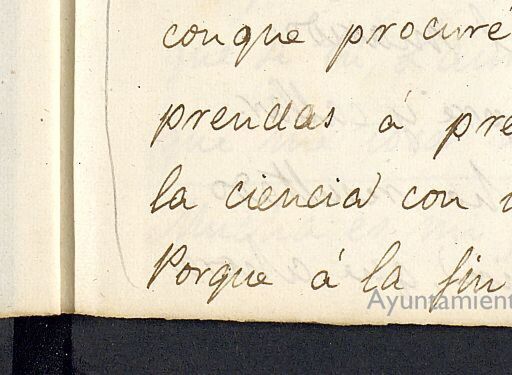 conque procuré
prendas á pre
la ciencia con
Porque á la fin
Ayuntamient